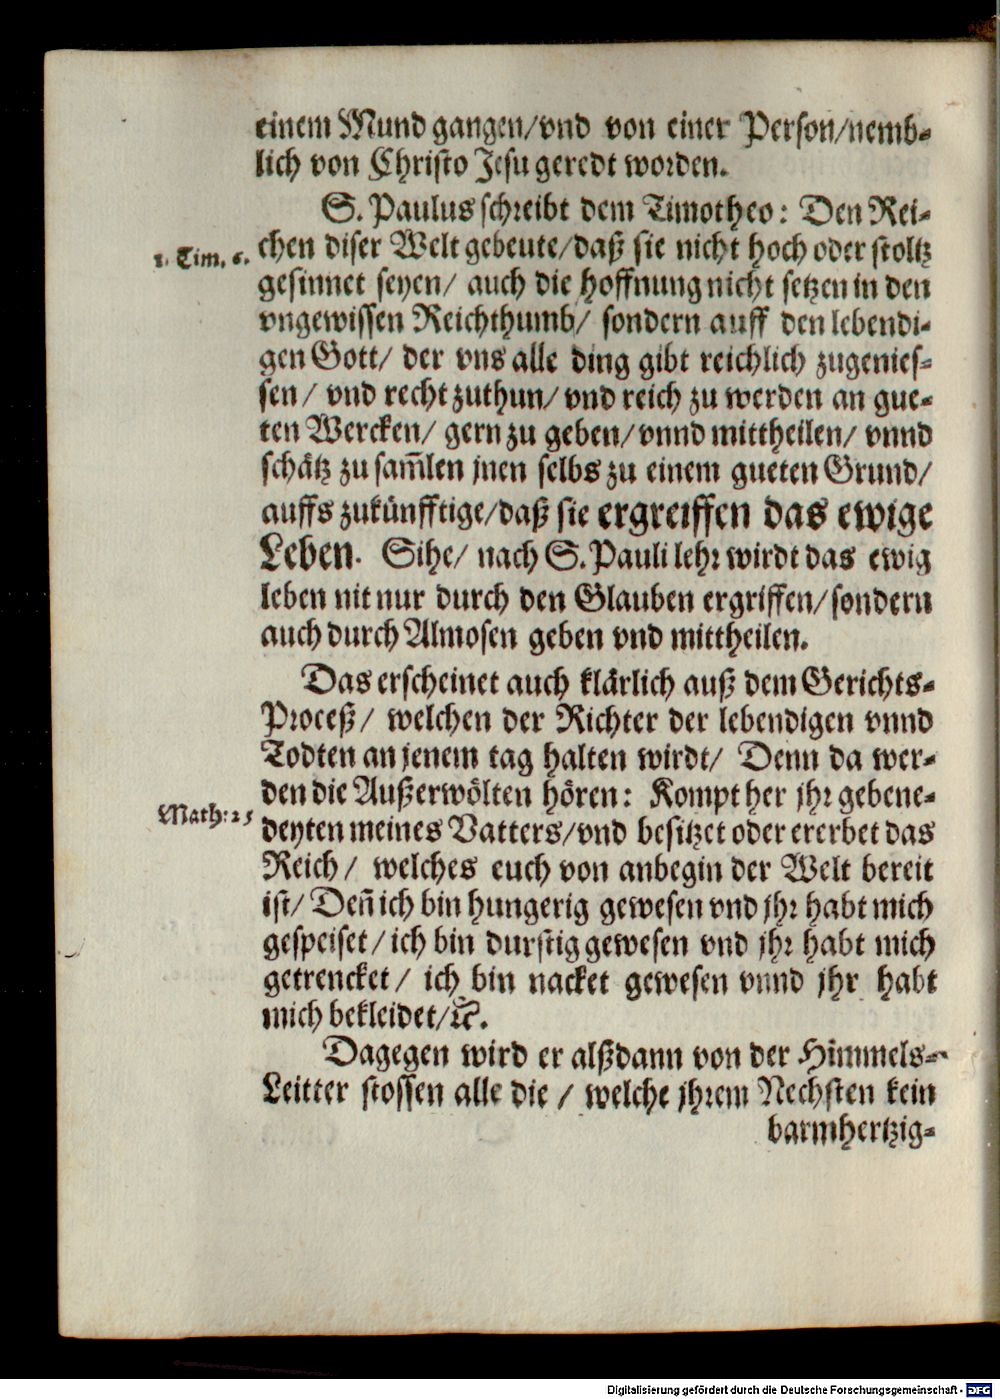 einem Mund gangen/vnd von einer Person/nemb-
lich von Christo Jesu geredt worden.
S. Paulus schreibt dem Timotheo: Den Rei-
1. Tim. 6.
chen diser Welt gebeute/daß sie nicht hoch oder stoltz
gesinnet seyen/ auch die hoffnung nicht setzen in den
vngewissen Reichthumb/ sondern auff den lebendi-
gen Gott/ der vns alle ding gibt reichlich zugenies-
sen/ vnd recht zuthun/vnd reich zu werden an gue-
ten Wercken/ gern zu geben/vnnd mittheilen/ vnnd
schätz zu sam̃len jnen selbs zu einem gueten Grund/
auffs zukünfftige/daß sie ergreiffen das ewige
Leben. Sihe/ nach S. Pauli lehr wirdt das ewig
leben nit nur durch den Glauben ergriffen/sondern
auch durch Almosen geben vnd mittheilen.
Das erscheinet auch klärlich auß dem Gerichts-
Proceß/ welchen der Richter der lebendigen vnnd
Todten an jenem tag halten wirdt/ Denn da wer-
den die Außerwölten hören: Kompt her jhr gebene-
Math: 25
deyten meines Vatters/vnd besitzet oder ererbet das
Reich/ welches euch von anbegin der Welt bereit
ist/ Deñ ich bin hungerig gewesen vnd jhr habt mich
gespeiset/ich bin durstig gewesen vnd jhr habt mich
getrencket/ ich bin nacket gewesen vnnd jhr habt
mich bekleidet/ꝛc.
Dagegen wird er alßdann von der Himmels-
Leitter stossen alle die/ welche jhrem Nechsten kein
barmhertzig-
Digitalisierung gefördert durch die Deutsche Forschungsgemeinschaft - DFG